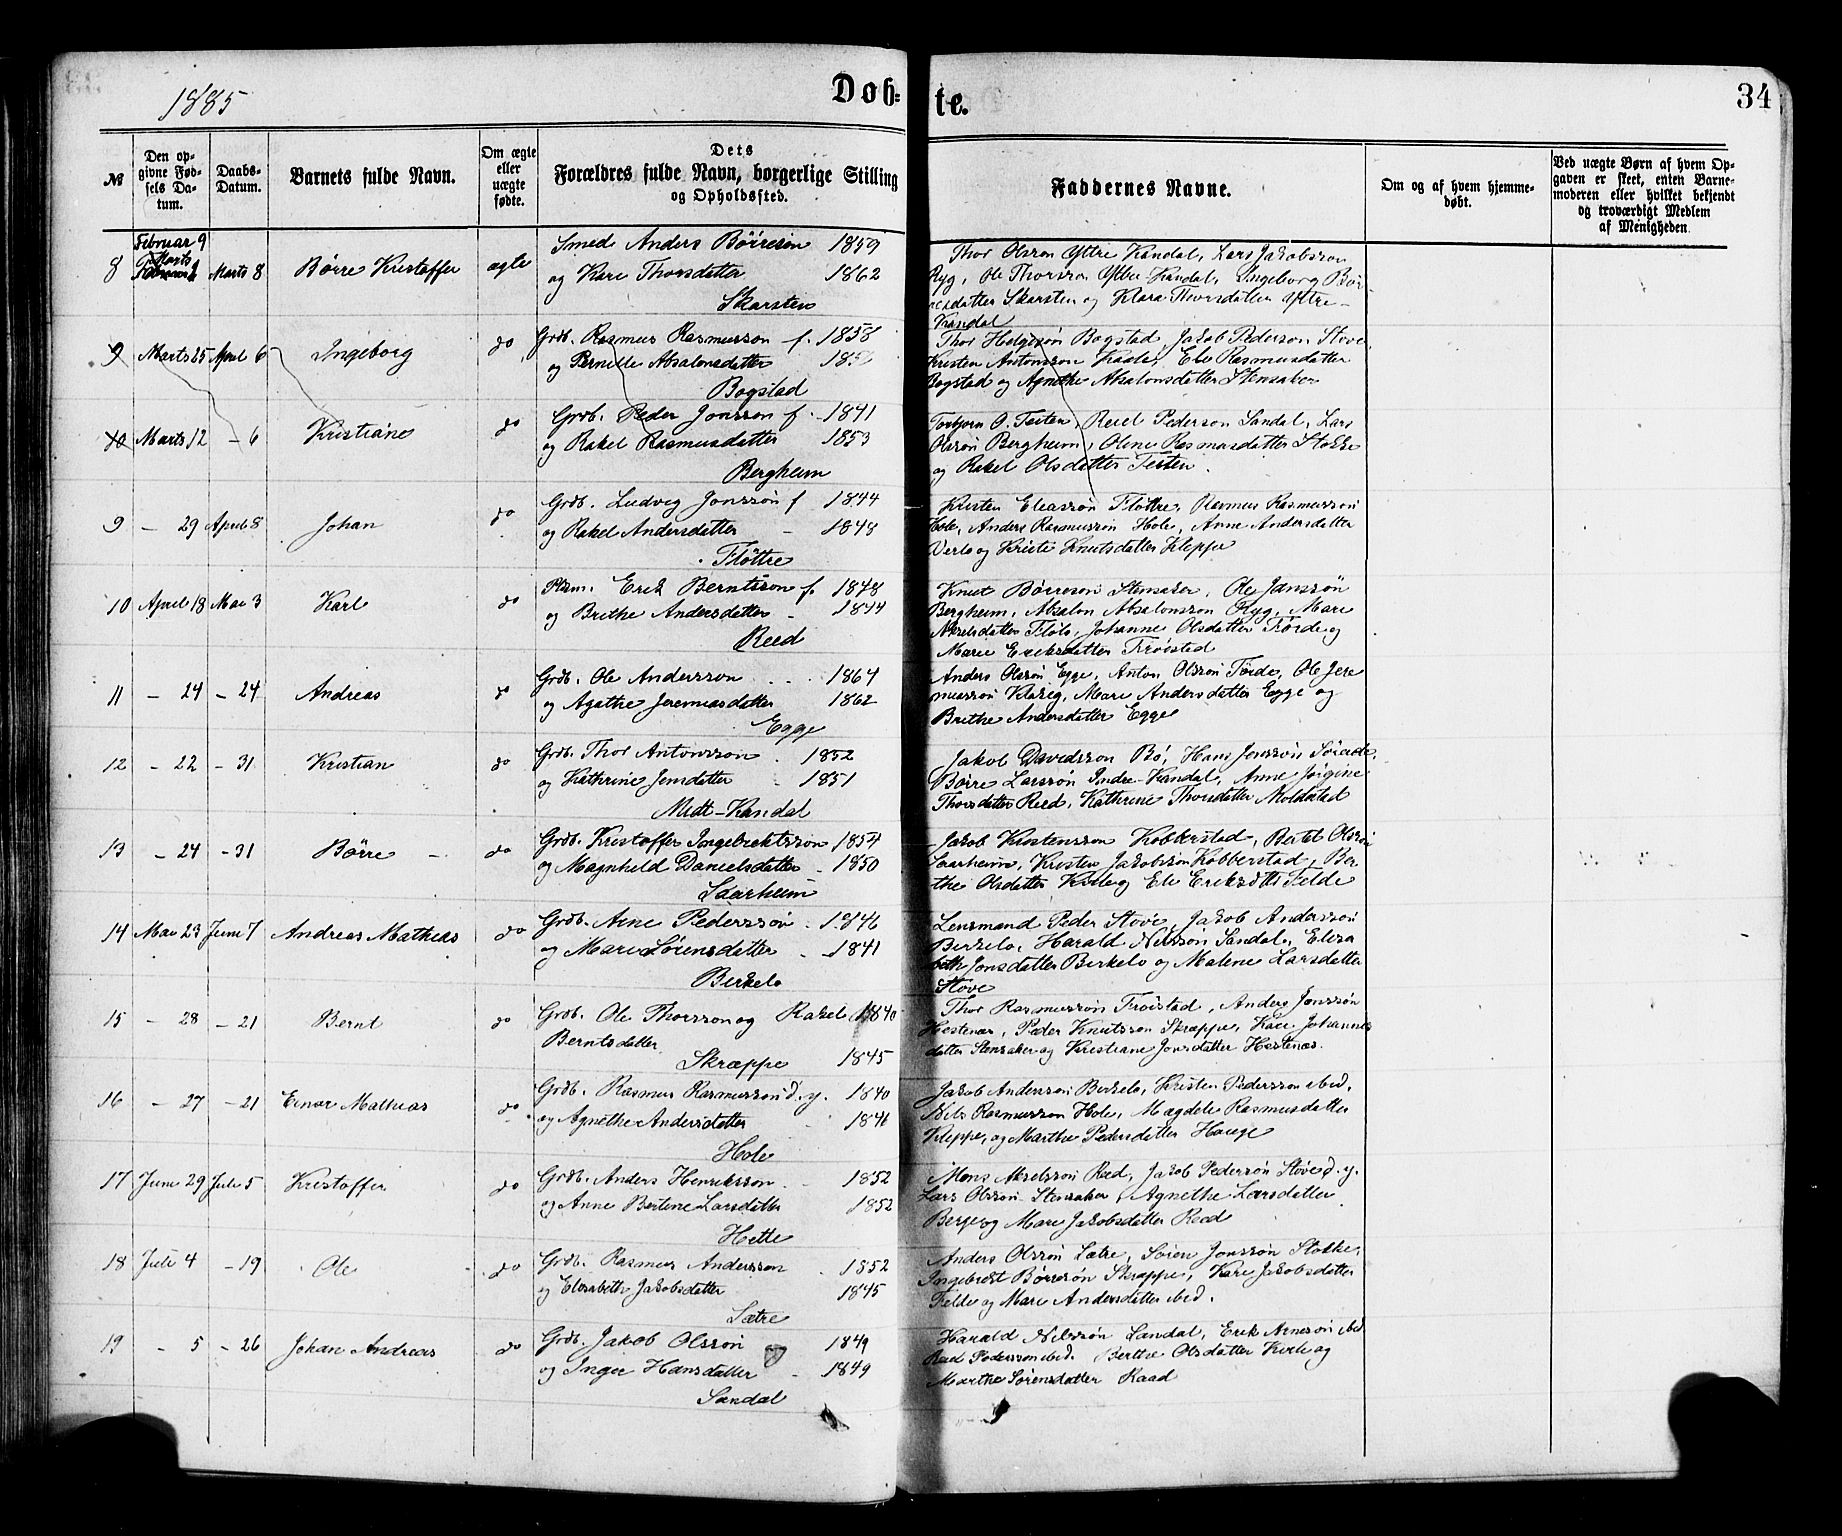 1885
Døb-
te.
34
№
Den op-
givne Fød-
sels Da-
tum.
Daabs-
Datum.
Barnets fulde Navn.
Om ægte
eller
uægte
fødte.
Dets
Forældres fulde Navn, borgerlige Stilling
og Opholdssted.
Faddernes Navne.
Om og af hvem hjemme-
døbt.
Ved uægte Børn af hvem Op-
gaven er skeet, enten Barne-
moderen eller hvilket bekjendt
og troværdigt Medlem
af Menigheden.
Februar 9
8 Marts 8 Børre Kristoffer ægte
Smed Anders Börresön 1859
og Kari Thorsdatter 1862
Skarsten
Thor Olsson Yttre Kandal, Lars Jakobsson
Ryg, Ole Thorsson Yttre Kandal, Ingeborg Bör-
resdatter Skarsten og Klara Thorsdatter Yttre-
Kandal
9 Marts 25 April 6 Ingeborg do
Grdb. Rasmus Rasmusson f. 1858
og Pernille Absalonsdatter
Bogstad
Thor Helgesön Bogstad, Jakob Pederson Støve,
Kristen Antonsson, Eli Rasmusdatter
Bogstad og Agnethe Absalonsdatter Stensaker
10 Marts 12 - 6 Kristiane do
Grdb. Peder Jonsson f. 1841
og Rakel Rasmusdatter 1853
Bergheim
Torbjørn O. Testen, Reiel Pederson Sandal, Lars
Olssön Bergheim, Oline Rasmusdatter Stokke
og Rakel Olsdatter Testen.
9 - 29 April 8 Johan do
Grdb. Ludvig Jonssön f 1844
og Rakel Andersdatter - 1848
Flöttre
Kristen Eleassön Flöttre, Rasmus Rasmusson
Hole, Anders Rasmusson Hole, Anne Andersdatter
Verlo og Kristi Knutsdatter Kleppe
10 April 18 Mai 3 Karl do
Erik Berntsson f. 1848
og Brithe Andersdatter - 1844
Reed
Knut Börreson Stensaker, Ole Jonssön
Bergheim, Absalon Absalonsson Ryg, Mari
Akselsdatter Flölo, Johanne Olsdatter Förde og
Marie Eriksdatter Tröistad
11 - 24 - 24 Andreas do
Grdb. Ole Andersson 1864
og Agathe Jeremiasdatter 1862
Egge
Anders Olssön Egge, Anton Olssön Förde, Ole Jere
miassön, Mari Andersdatter Egge og
Brithe Andersdatter Egge
12 - 22 - 31 Kristian do
Grdb. Thor Antonsson 1852
og Kathrine Jensdatter 1851
Midt-Kandal
Jakob Davidsson Bö, Hans Jonssön
Börre Larssön Indre-Kandal, Anne Jörgine
Thorsdatter Reed, Kathrine Thorsdatter Moldestad
13 - 24 - 31 Børre do
Grdb. Kristoffer Ingebrektsson 1854
og Magnhild Danielsdatter 1850
Saarheim
Jakob Kristensson Kobberstad, Bertel Olssön
Saarheim, Kristen Jakobsson Kobberstad, Ber
the Olsdatter og Eli Eriksdttr Felde
14 Mai 23 Juni 7 Andreas Mathias do
Grdb. Arne Pederssön 1846
og Mari Sörensdatter 1841
Birkelo
Lensmand Peder Støve, Jakob Anderssön
Birkelo, Harald Nilsson Sandal, Elisa
beth Jonsdatter Birkelo og Malene Larsdatter
Støve
15 - 28 - 21 Bernt do
Grdb. Ole Thorsson og Rakel 1840
Berntsdatter
Skræppe 1845
Thor Rasmusson Tröistad, Anders Jonssön
Hestenæs, Peder Knutsson Skræppe, Kari Johannes
datter Stensaker og Kristiane Jonsdatter Hestenæs.
16 - 27 - 21 Einar Mathias do
Grdb. Rasmus Rasmusson d. y. 1840
og Agnethe Andersdatter 1846
Hole
Jakob Andersson Birkelo, Kristen Pedersson ibid,
Nils Rasmusson Hole, Magdele Rasmusdatter
Kleppe, og Marthe Pedersdatter Hauge
17 Juni 29 Juli 5 Kristoffer do
Grdb. Anders Henriksson 1852
og Anne Bertine Larsdatter 1852
Hetle
Mons Akselssön Reed, Jakob Pederssön Støve d. y.
Lars Olsson Stensaker, Agnethe Larsdatter
Berge og Mari Jakobsdatter Reed
18 Juli 4 - 19 Ole do
Grdb. Rasmus Andersson 1852
og Elisabeth Jakobsdatter 1845
Sætre
Anders Olssön Sætre, Sören Jonssön Stokke,
Ingebrigt Börresön Skræppe, Kari Jakobsdatter
Felde og Mari Andersdatter ibid.
19 - 5 - 26 Johan Andreas do
Grdb. Jakob Olssön 1849
og Inger Hansdatter 1849
Sandal
Harald Nilssön Sandal, Erik Arnesön ibid
Reiel Pedersson ibid. Berthe Olsdatter og
Marthe Sörensdatter Raad